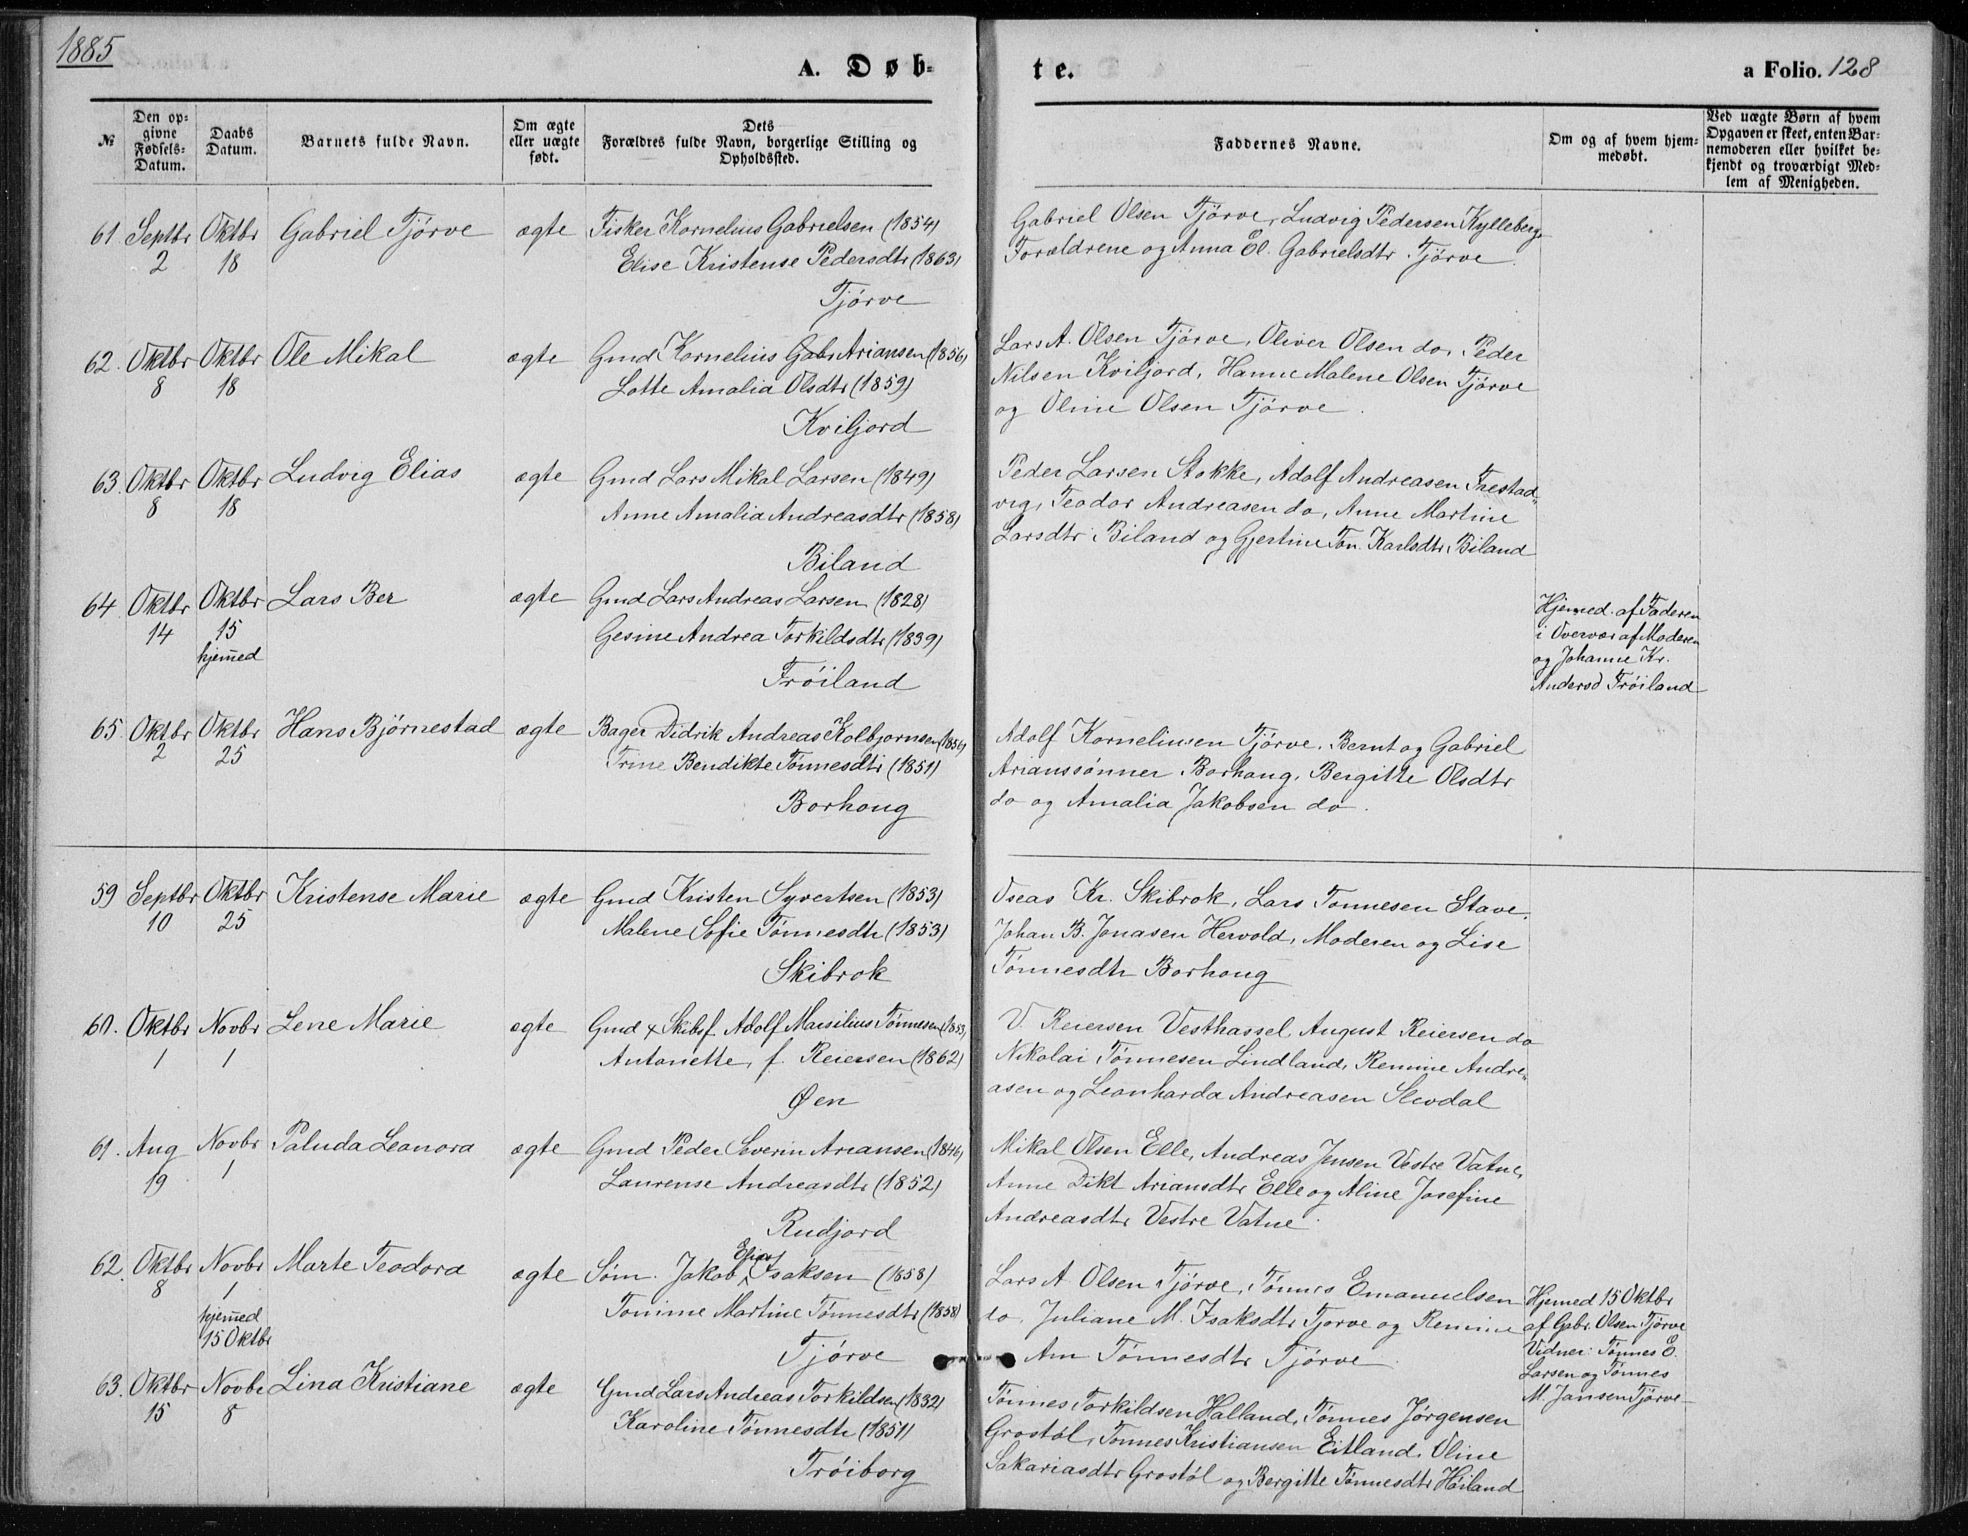 1885
A. Døb-
te.
a Folio. 128
№
Den op-
givne
Fødsels-
Datum.
Daabs
Datum.
Barnets fulde Navn.
Om ægte
eller uægte
født.
Dets
Forældres fulde Navn, borgerlige Stilling og
Opholdssted.
Faddernes Navne.
Om og af hvem hjem-
medøbt.
Ved uægte Børn af hvem
Opgaven er skeet, enten Bar-
nemoderen eller hvilket be-
kjendt og troværdigt Med-
lem af Menigheden.
61 Septbr Oktbr Gabriel Tjørve ægte Fisker Kornelius Gabrielsen (1854)
2 18 Elise Kristense Pedersdtr (1863)
Tjørve
Gabriel Olsen Tjørve, Ludvig Pedersen Kylleberg,
Forældrene og Anna El. Gabrielsdtr Tjørve
62. Oktbr Oktbr Ole Mikal ægte Gmd Kornelius Gabr Ariansen (1856)
8 18 Lotte Amalia Olsdtr (1859)
Kviljord
Lars A. Olsen Tjørve, Oliver Olsen do, Peder
Nilsen Kviljord, Hanne Malene Olsen Tjørve
og Oline Olsen Tjørve.
63. Oktbr Oktbr Ludvig Elias ægte Gmd Lars Mikal Larsen (1849)
8 18 Anne Amalia Andreasdtr (1858)
Biland
Peder Larsen Stokke, Adolf Andreasen Frestad-
vig, Teodor Andreasen do, Anne Martine
Larsdtr Biland og Gjertine Ton. Karlsdtr Biland
64 Oktbr Oktbr Lars Ber ægte Gmd Lars Andreas Larsen (1828)
14 15 Gesine Andrea Torkildsdtr (1839)
hjemed
Trøiland
Hjemed. af Faderen
i Overvær af Moderen
og Johanne Kr.
Andersd Trøiland
65 Oktbr Oktbr Hans Bjørnestad ægte Bager Didrik Andreas Kolbjørnsen (1856)
2 25 Trine Bendikte Tønnesdtr (1851)
Borhoug
Adolf Korneliusen Tjørve, Bernt og Gabriel
Arianssønner Borhaug, Bergitte Olsdtr
do og Amalia Jakobsen do.
59 Septbr Oktbr Kristense Marie ægte Gmd Kristen Syvertsen (1853)
10 25 Malene Sofie Tønnesdtr (1853)
Skibrok
Oseas Kr. Skibrok, Lars Tønnesen Stave,
Johan B. Jonasen Hervold, Moderen og Lise
Tønnesdtr Borhoug
60. Oktbr Novbr Lene Marie ægte Gmd & Skibsf. Adolf Marsilius Tønnesen (1853)
1 1 Antonette, f. Reiersen (1862)
Øen
V. Reiersen Vesthassel, August Reiersen do
Nikolai Tønnesen Lindland, Remine Andre-
asen og Leonharda Andreasen Slevdal
61. Aug Novbr Paluda Leanora ægte Gmd Peder Severin Ariansen (1846)
19 1 Laurense Andreasdtr (1852)
Rudjord
Mikal Olsen Elle, Andreas Jensen Vestre Vatne,
Anne Dikt Ariansdtr Elle og Aline Josefine
Andreasdtr Vestre Vatne.
62. Oktbr Novbr Marte Teodora ægte Søm. Jakob Elias Isaksen (1858)
8 1 Tomine Martine Tønnesdtr (1858)
hjemed
15 Oktbr
Tjørve
Lars A. Olsen Tjørve, Tønnes Emanuelsen
do, Juliane M. Isaksdtr Tjørve og Remine
Am Tønnesdtr Tjørve
Hjemed 15 Oktbr
af Gabr. Olsen Tjørve
Vidner: Tønnes E.
Larsen og Tønnes
M. Jansen Tjørve
63. Oktbr Novbr Lina Kristiane ægte Gmd Lars Andreas Torkildsen (1832)
15 8 Karoline Tønnesdtr (1851)
Trøiborg
Tønnes Torkildsen Halland, Tønnes Jørgensen
Grostøl, Tønnes Kristiansen Eitland, Oline
Sakariasdtr Grostøl og Bergitte Tønnesdtr Høiland